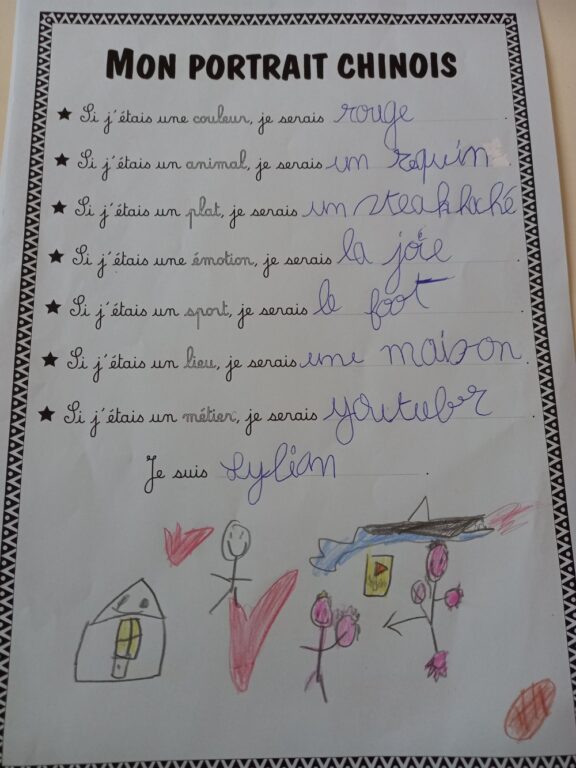 MON PORTRAIT CHINOIS
★ Si j'étais une couleur, je serais rouge.
★ Si j'étais un animal, je serais un requin.
★ Si j'étais un plat, je serais un steak haché
★ Si j'étais une émotion, je serais la joie.
★ Si j'étais un sport, je serais le foot.
★ Si j'étais un lieu, je serais une maison.
★ Si j'étais un métier, je serais youtubr.
Je suis Lylian.